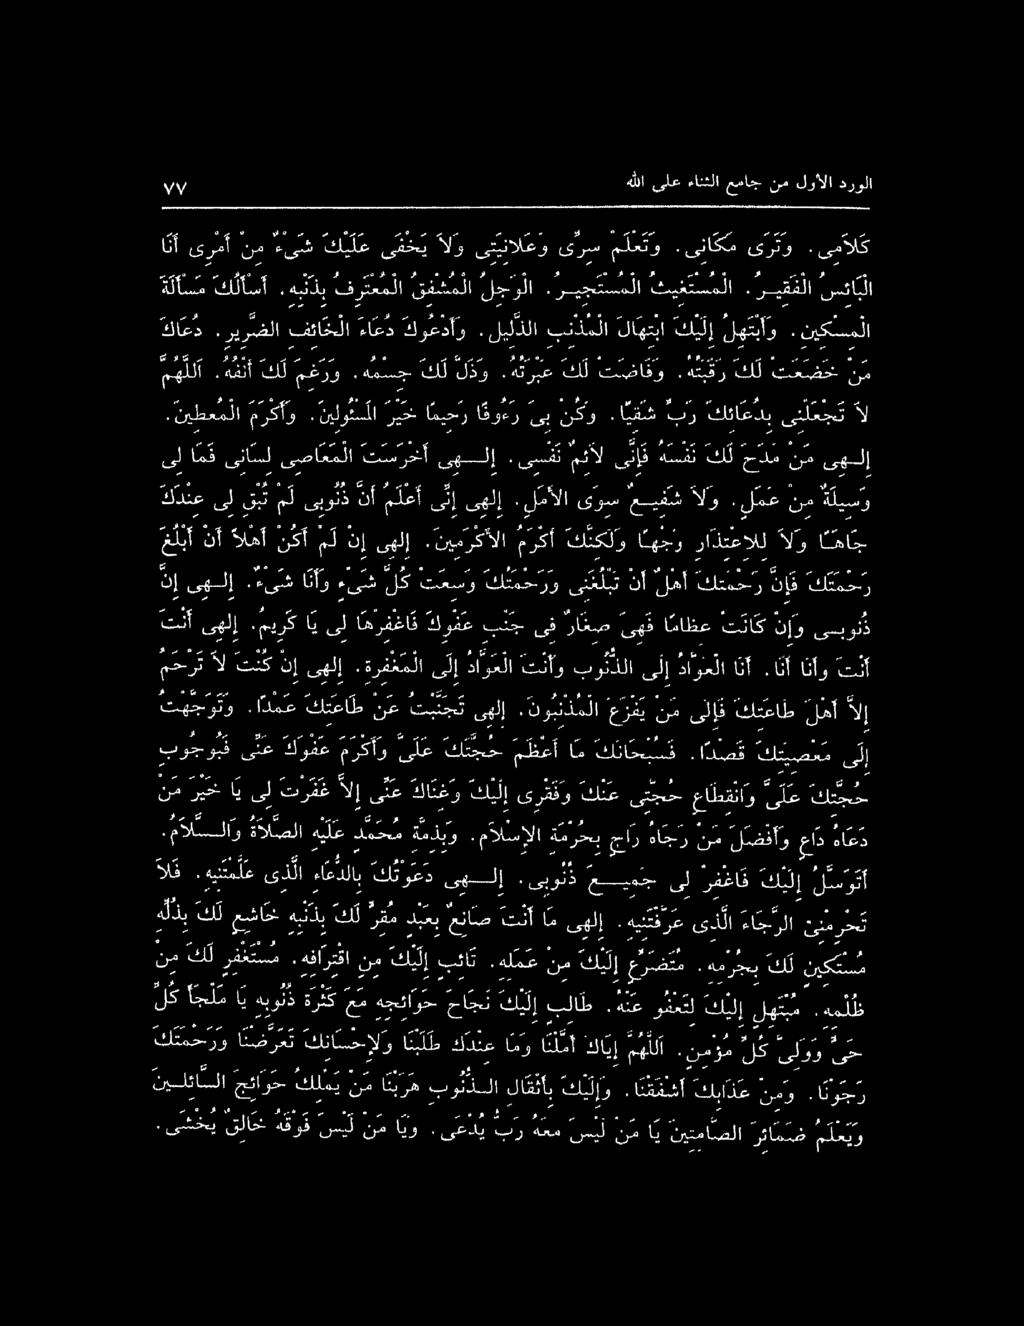 الورد الأول من جامع الثناء على الله ٧٧
كَلاَمِى. وَتَرَى مَكَانِى. وَتَعْلَمْ سِرِّى وَعَلاَنِيَتِى وَلاَ يَخْفَى عَلَيْكَ شَىْءٌ مِنْ أَمْرِى أَنَا
الْبَائِسُ الْفَقِيـرُ. الْمُسْتَغِيثُ الْمُسْتَجِيـرُ. الْوَجِلُ الْمُشْفِقُ الْمُعْتَرِفُ بِذَنْبِهِ. أَسْأَلُكَ مَسْأَلَةَ
الْمِسْكِينِ. وَأَبْتَهِلُ إِلَيْكَ ابْتِهَالَ الْمُذْنِبِ الذَّلِيلِ. وَأَدْعُوكَ دُعَاءَ الْخَائِفِ الضَّرِيرِ. دُعَاكَ
مَنْ خَضَعَتْ لَكَ رَقَبَتُهُ. وَفَاضَتْ لَكَ عَبْرَتُهُ. وَذَلَّ لَكَ جِسْمُهُ. وَرَغِمَ لَكَ أَنْفُهُ. اَللَّهُمَّ
لاَ تَجْعَلْنِى بِدُعَائِكَ رَبِّ شَقِيًّا. وَكُنْ بِىَ رَءُوفًا رَحِيمًا خَيْرَ الْمَسْئُولِينَ. وَأَكْرَمَ الْمُعْطِينَ.
إِلَـهِى مَنْ مَدَحَ لَكَ نَفْسَهُ فَإِنِّى لاَئِمٌ نَفْسِى. إِلَـــهِى أَخْرَسَتَ الْمَعَاصِى لِسَانِى فَمَا لِى
وَسِيلَةٌ مِنْ عَمَلٍ. وَلاَ شَفِيـعٌ سِوَى الأَمَلِ. إِلهِى إِنِّى أَعْلَمُ أَنَّ ذُنُوبِى لَمْ تُبْقِ لِى عِنْدَكَ
جَاهًـا وَلاَ لِلاِعْتِذَارِ وَجْهًـا وَلَكِنَّكَ أَكْرَمُ الأَكْرَمِينَ. إِلهِى إِنْ لَمْ أَكُنْ أَهْلاً أَنْ أَبْلُغَ
رَحْمَتَكَ فَإِنَّ رَحْمَتَكَ أَهْلٌ أَنْ تَبْلُغَنِى وَرَحْمَتُكَ وَسِعَتْ كُلَّ شَىْءٍ وَأَنَا شَىْءٌ. إِلَـهِى إِنَّ
ذُنُوبِـى وَإِنْ كَانَتْ عِظَامًا فَهِىَ صِغَارٌ فِى جَنْبِ عَفْوِكَ فَاغْفِرْهَا لِى يَا كَرِيمُ. إِلهِى أَنْتَ
أَنْتَ وَأَنَا أَنَا. أَنَا الْعَوَّادُ إِلَى الذُّنُوبِ وَأَنْتَ الْعَوَّادُ إِلَى الْمَغْفِرَةِ. إِلهِى إِنْ كُنْتَ لاَ تَرْحَمُ
إِلاَّ أَهْلَ طَاعَتِكَ فَإِلَى مَنْ يَفْزَعُ الْمُذْنِبُونَ. إِلهِى تَجَنَّبْتُ عَنْ طَاعَتِكَ عَمْدًا. وَتَوَجَّهْتُ
إِلَى مَعْصِيَتِكَ قَصْدًا. فَسُبْحَانَكَ مَا أَعْظَمَ حُجَّتَكَ عَلَىَّ وَأَكْرَمَ عَفْوَكَ عَنِّى فَبِوُجُوبِ
حُجَّتِكَ عَلَىَّ وَانْقِطَاعِ حُجَّتِى عَنْكَ وَفَقْرِى إِلَيْكَ وَغِنَاكَ عَنِّى إِلاَّ غَفَرْتَ لِى يَا خَيْرَ مَنْ
دَعَاهُ دَاعٍ وَأَفْضَلَ مَنْ رَجَاهُ رَاجٍ بِحُرْمَةِ الإِسْلاَمِ. وَبِذِمَّةِ مُحَمَّدٍ عَلَيْهِ الصَّلاَةُ وَالـــسَّلاَمُ.
أَتَوَسَّلُ إِلَيْكَ فَاغْفِرْ لِى جَمِيــــعَ ذُنُوبِى. إِلَـــهِى دَعَوْتُكَ بِالدُّعَاءِ الَّذِى عَلَّمْتَنِيهِ. فَلاَ
تَحْرِمْنِىْ الرَّجَاءَ الَّذِى عَرَّفْتَنِيهِ. إِلهِى مَا أَنْتَ صَانِعٌ بِعَبْدٍ مُقِرٍّ لَكَ بِذَنْبِهِ خَاشِعٍ لَكَ بِذُلِّهِ
مُسْتَكِينٍ لَكَ بِجُرْمِهِ. مُتَضَرِّعٍ إِلَيْكَ مِنْ عَمَلِهِ. تَائِبٍ إِلَيْكَ مِنِ اقْتِرَافِهِ. مُسْتَغْفِرٍ لَكَ مِنْ
ظُلْمِهِ. مُبْتَهِلٍ إِلَيْكَ لِتَعْفُوَ عَنْهُ. طَالِبٍ إِلَيْكَ نَجَاحَ حَوَائِجِهِ مَعَ كَثْرَةِ ذُنُوبِهِ يَا مَلْجَأَ كُلِّ
حَىٍّ وَوَلِىَّ كُلِّ مُؤْمِنٍ. اَللَّهُمَّ إِيَّاكَ أَمَّلْنَا وَمَا عِنْدَكَ طَلَبْنَا وَلإِحْسَانِكَ تَعَرَّضْنَا وَرَحْمَتَكَ
رَجَوْنَا. وَمِنْ عَذَابِكَ أَشْفَقْنَا. وَإِلَيْكَ بِأَثْقَالِ الــذُّنُوبِ هَرَبْنَا مَنْ يَمْلِكُ حَوَائِجَ السَّائِلــِينَ
وَيَعْلَمُ ضَمَائِرَ الصَّامِتِينَ يَا مَنْ لَيْسَ مَعَهُ رَبٌّ يُدْعَى. وَيَا مَنْ لَيْسَ فَوْقَهُ خَالِقٌ يُخْشَى.